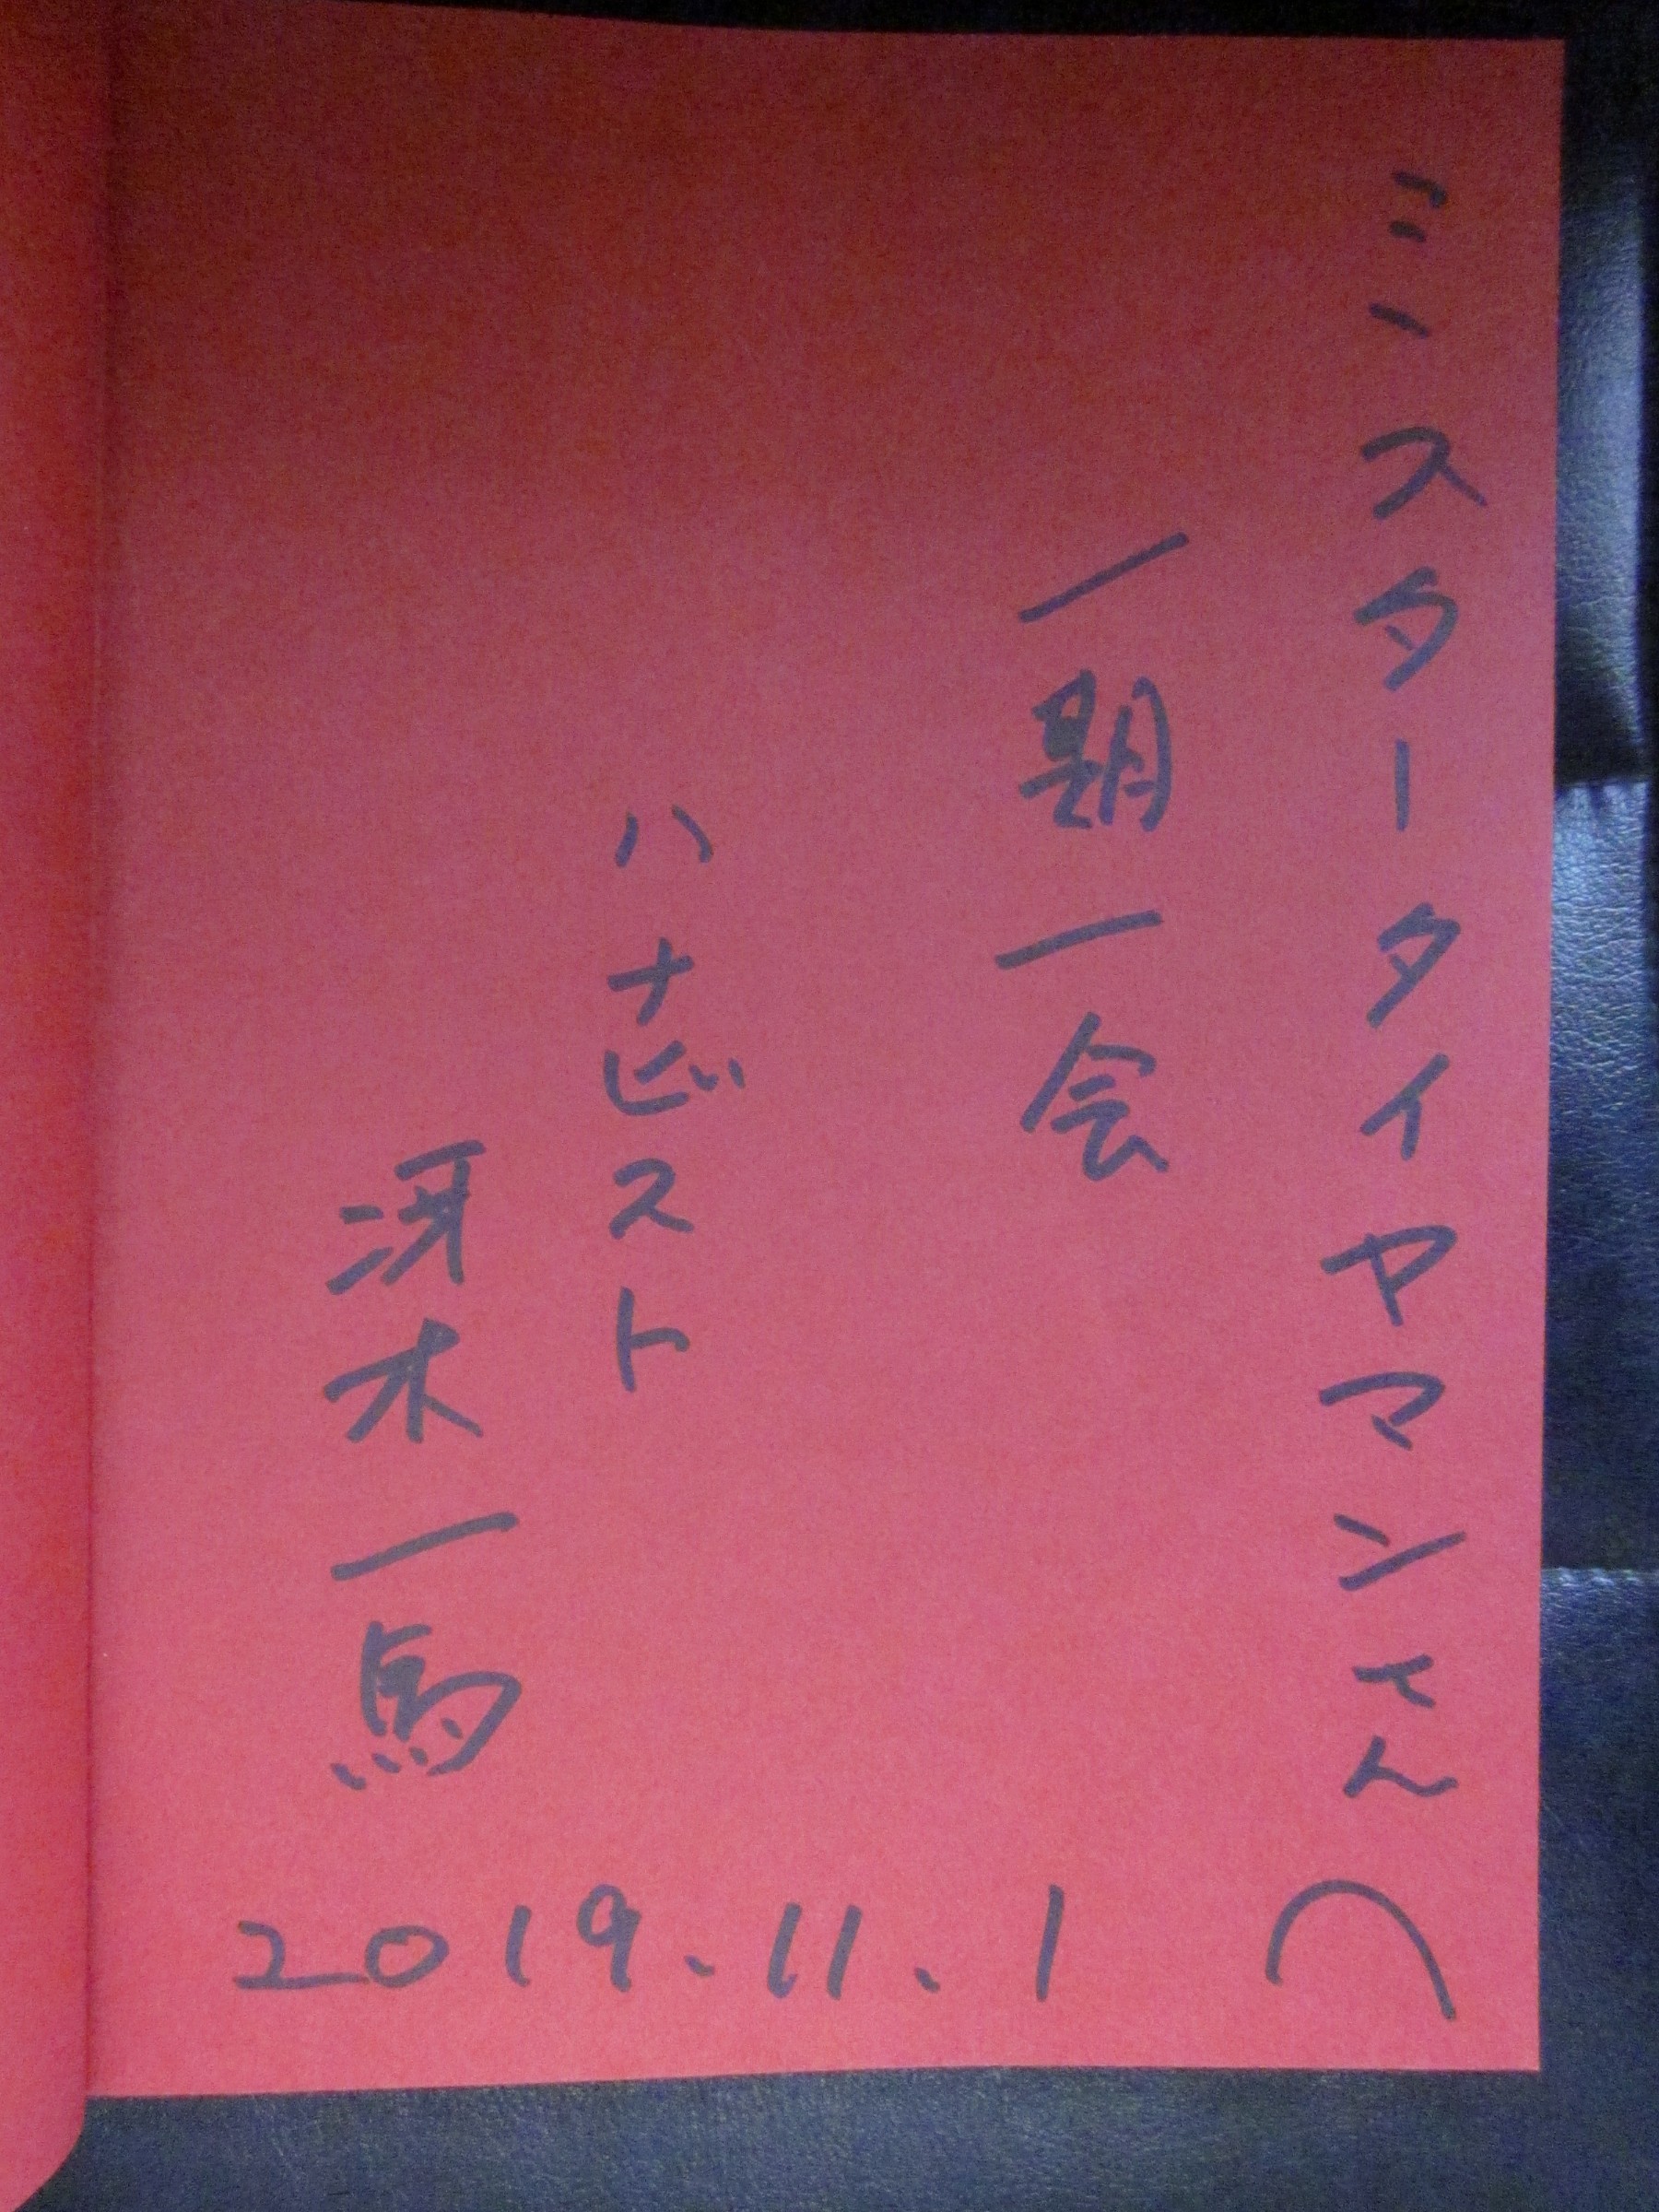 ミスタータイヤマンさんへ
一期一会
ハナビスト
冴木一馬
2019.11.1